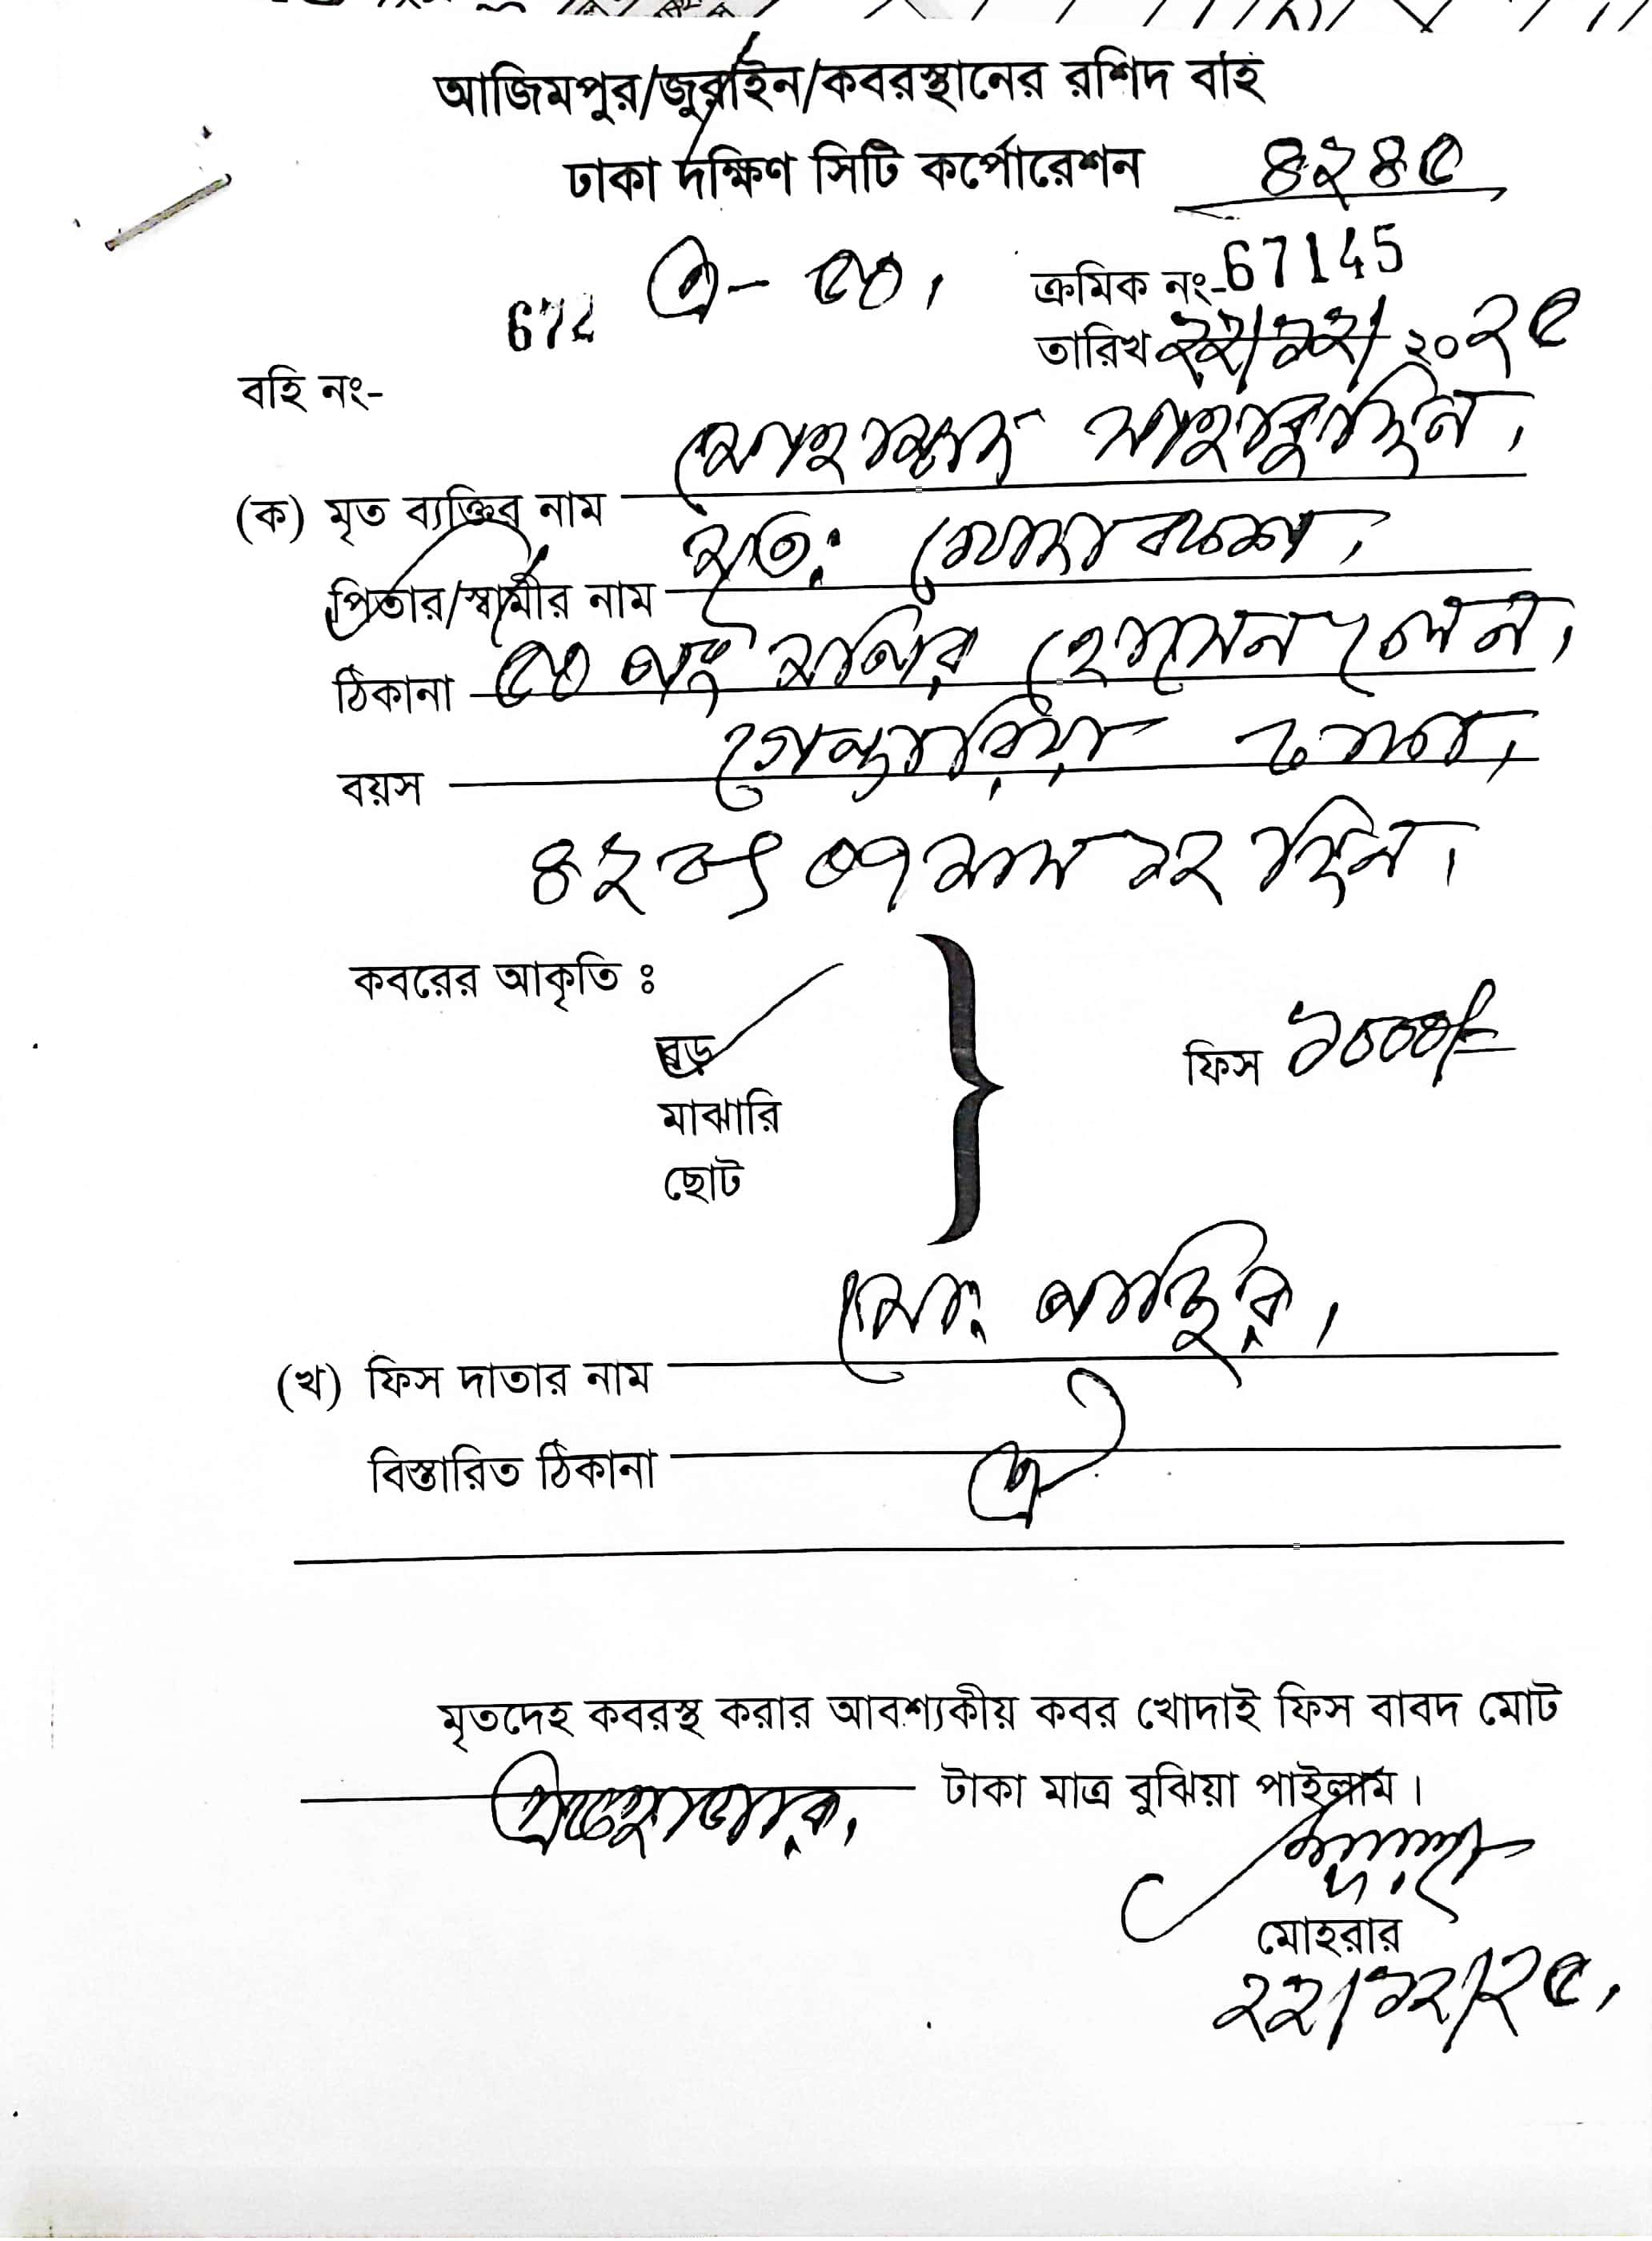 আজিমপুর/জুরাইন/কবরস্থানের রশিদ বহি
ঢাকা দক্ষিণ সিটি কর্পোরেশন ৪২৪৫
এ- ৫০, ক্রমিক নং-67145
672
তারিখ ২২/১২/২০২৫
বহি নং-
(ক) মৃত ব্যক্তির নাম মোহাম্মদ সাহাবুদ্দিন,
পিতার/স্বামীর নাম মৃত: খোদা বকস,
ঠিকানা ৫০ নং মনির হোসেন লেন,
গেন্ডারিয়া ঢাকা,
বয়স
৪২ বৎ ০৭ মাস ১২ দিন।
কবরের আকৃতি ঃ
বড়
মাঝারি
ছোট
ফিস ১০০০/=
(খ) ফিস দাতার নাম মো:
বিস্তারিত ঠিকানা ঐ
মৃতদেহ কবরস্থ করার আবশ্যকীয় কবর খোদাই ফিস বাবদ মোট
একহাজার, টাকা মাত্র বুঝিয়া পাইলাম।
মোহরার
২২/১২/২৫,